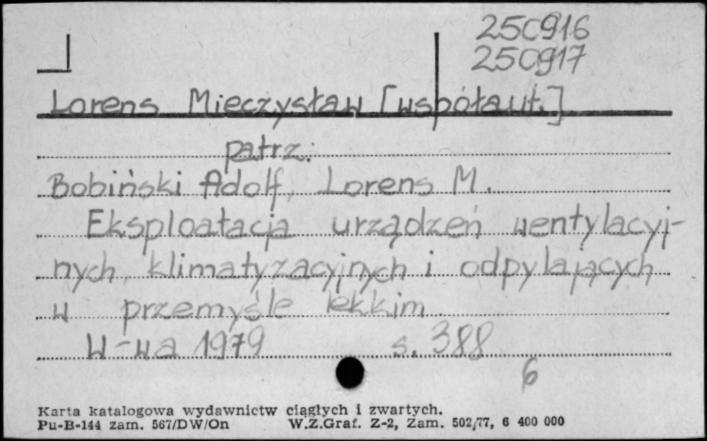 250916
250917
Lorens Mieczysław [współaut.]
patrz:
Bobiński Adolf, Lorens M.
Eksploatacja urządzeń wentylacyj-
nych, klimatyzacyjnych i odpylających
w przemyśle lekkim.
W-wa 1979 s. 388
6
Karta katalogowa wydawnictw ciągłych i zwartych.
Pu-B-144 zam. 567/DW/On W.Z.Graf. Z-2, Zam. 502/77, 6 400 000